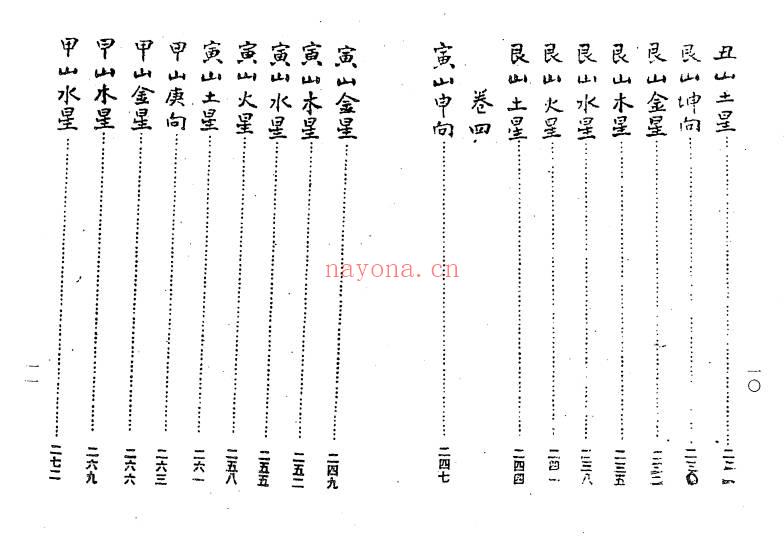 丑山土星
艮山坤向……二三〇
艮山金星……二三二
艮山木星……二三五
艮山水星……二三八
艮山火星……二四一
艮山土星……二四四
卷四
寅山申向……二四七
一〇
寅山金星……二四九
寅山木星……二五二
寅山水星……二五五
寅山火星……二五八
寅山土星……二六一
甲山庚向……二六三
甲山金星……二六六
甲山木星……二六九
甲山水星……二七二
一一
nayona.cn